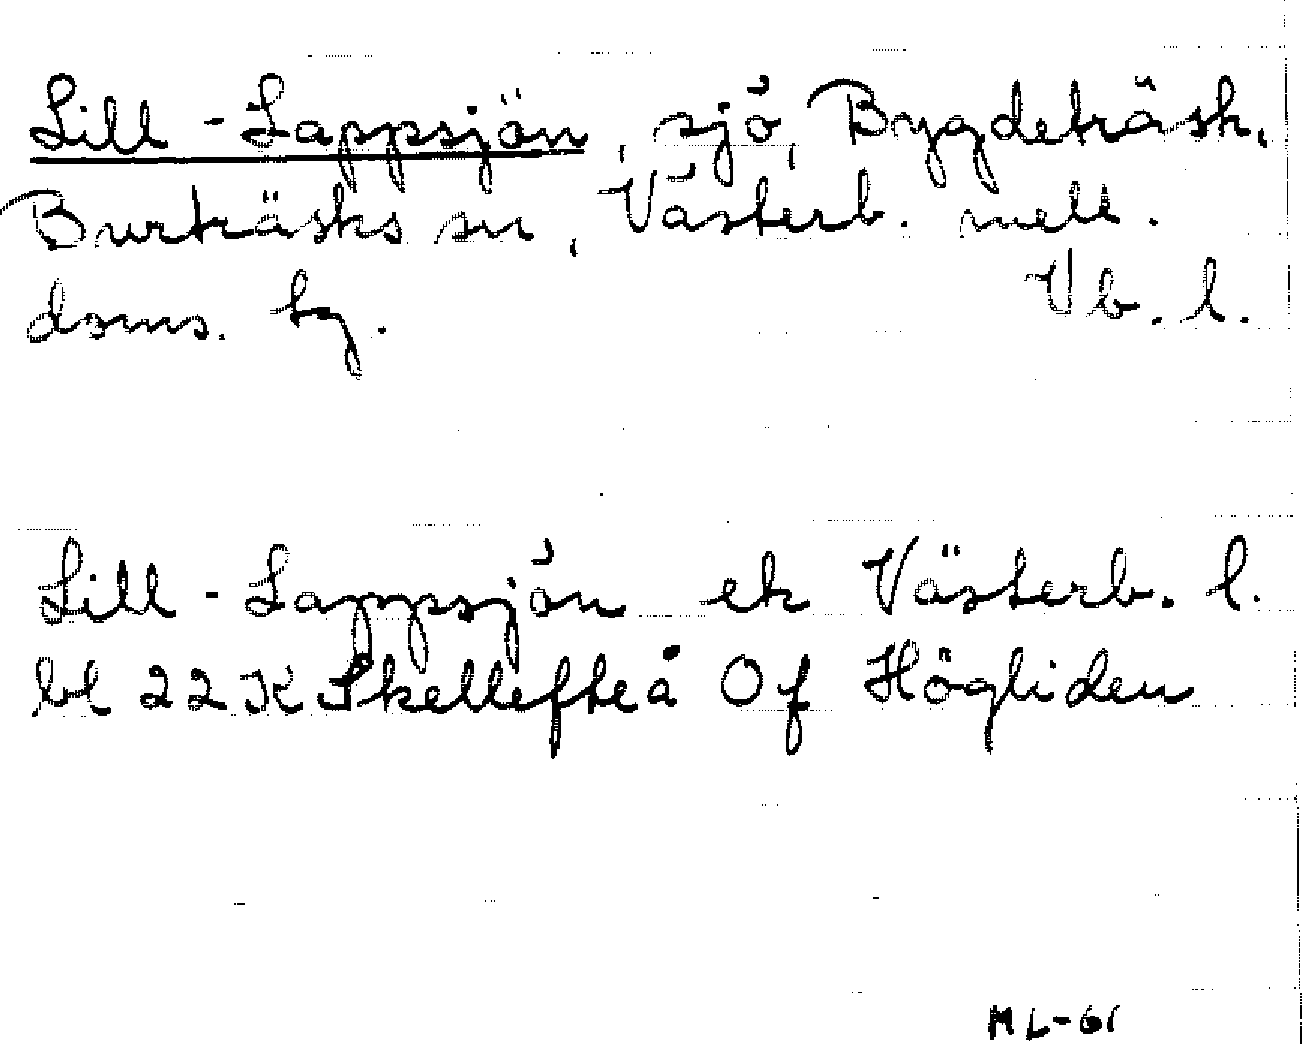 Lill-Lappsjön, sjö, Bygdeträsk,
Burträsks sn, Västerb. mell.
doms. tg. Vb. l.
Lill-Lappsjön ek Västerb. l.
bl 22 K Skellefteå Of Högliden
ML-61